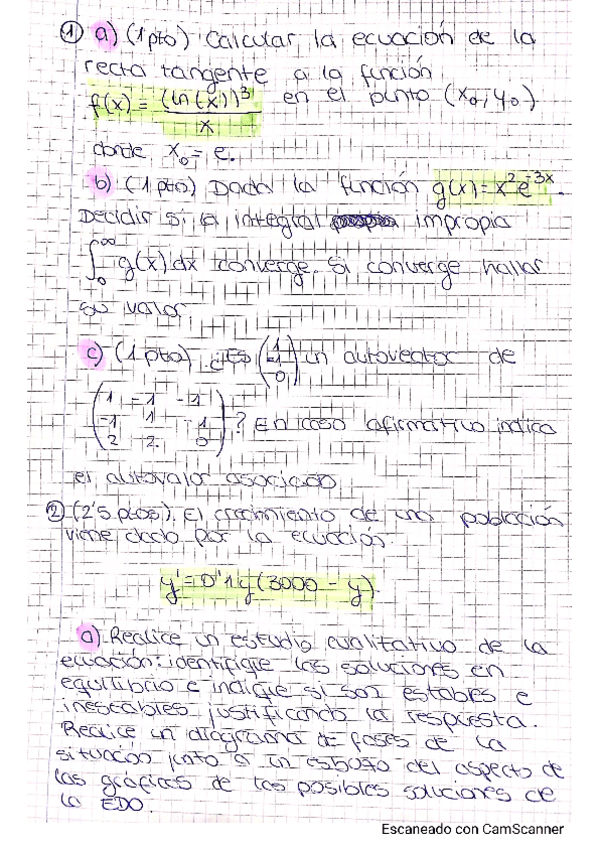 ① a) (1pto) Calcular la ecuación de la
recta tangente a la función
f(x) = (ln(x))³ / x en el punto (x₀, y₀)
donde x₀ = e.
b) (1pto) Dada la función g(x) = x²e⁻³ˣ.
Decidir si la integral impropia
∫₀^∞ g(x) dx converge. Si converge hallar
su valor
c) (1pto) ¿Es un autovector de
2 2 0 ? En caso afirmativo indica
el autovalor asociado
② (2'5 ptos). El crecimiento de una población
viene dado por la ecuación:
y' = 0'1y(3000 - y).
a) Realice un estudio cualitativo de la
ecuación: identifique las soluciones en
equilibrio e indique si son estables e
inestables justificando la respuesta.
Realice un diagrama de fases de la
situación junto a un esbozo del aspecto de
las gráficas de las posibles soluciones de
la EDO.
Escaneado con CamScanner